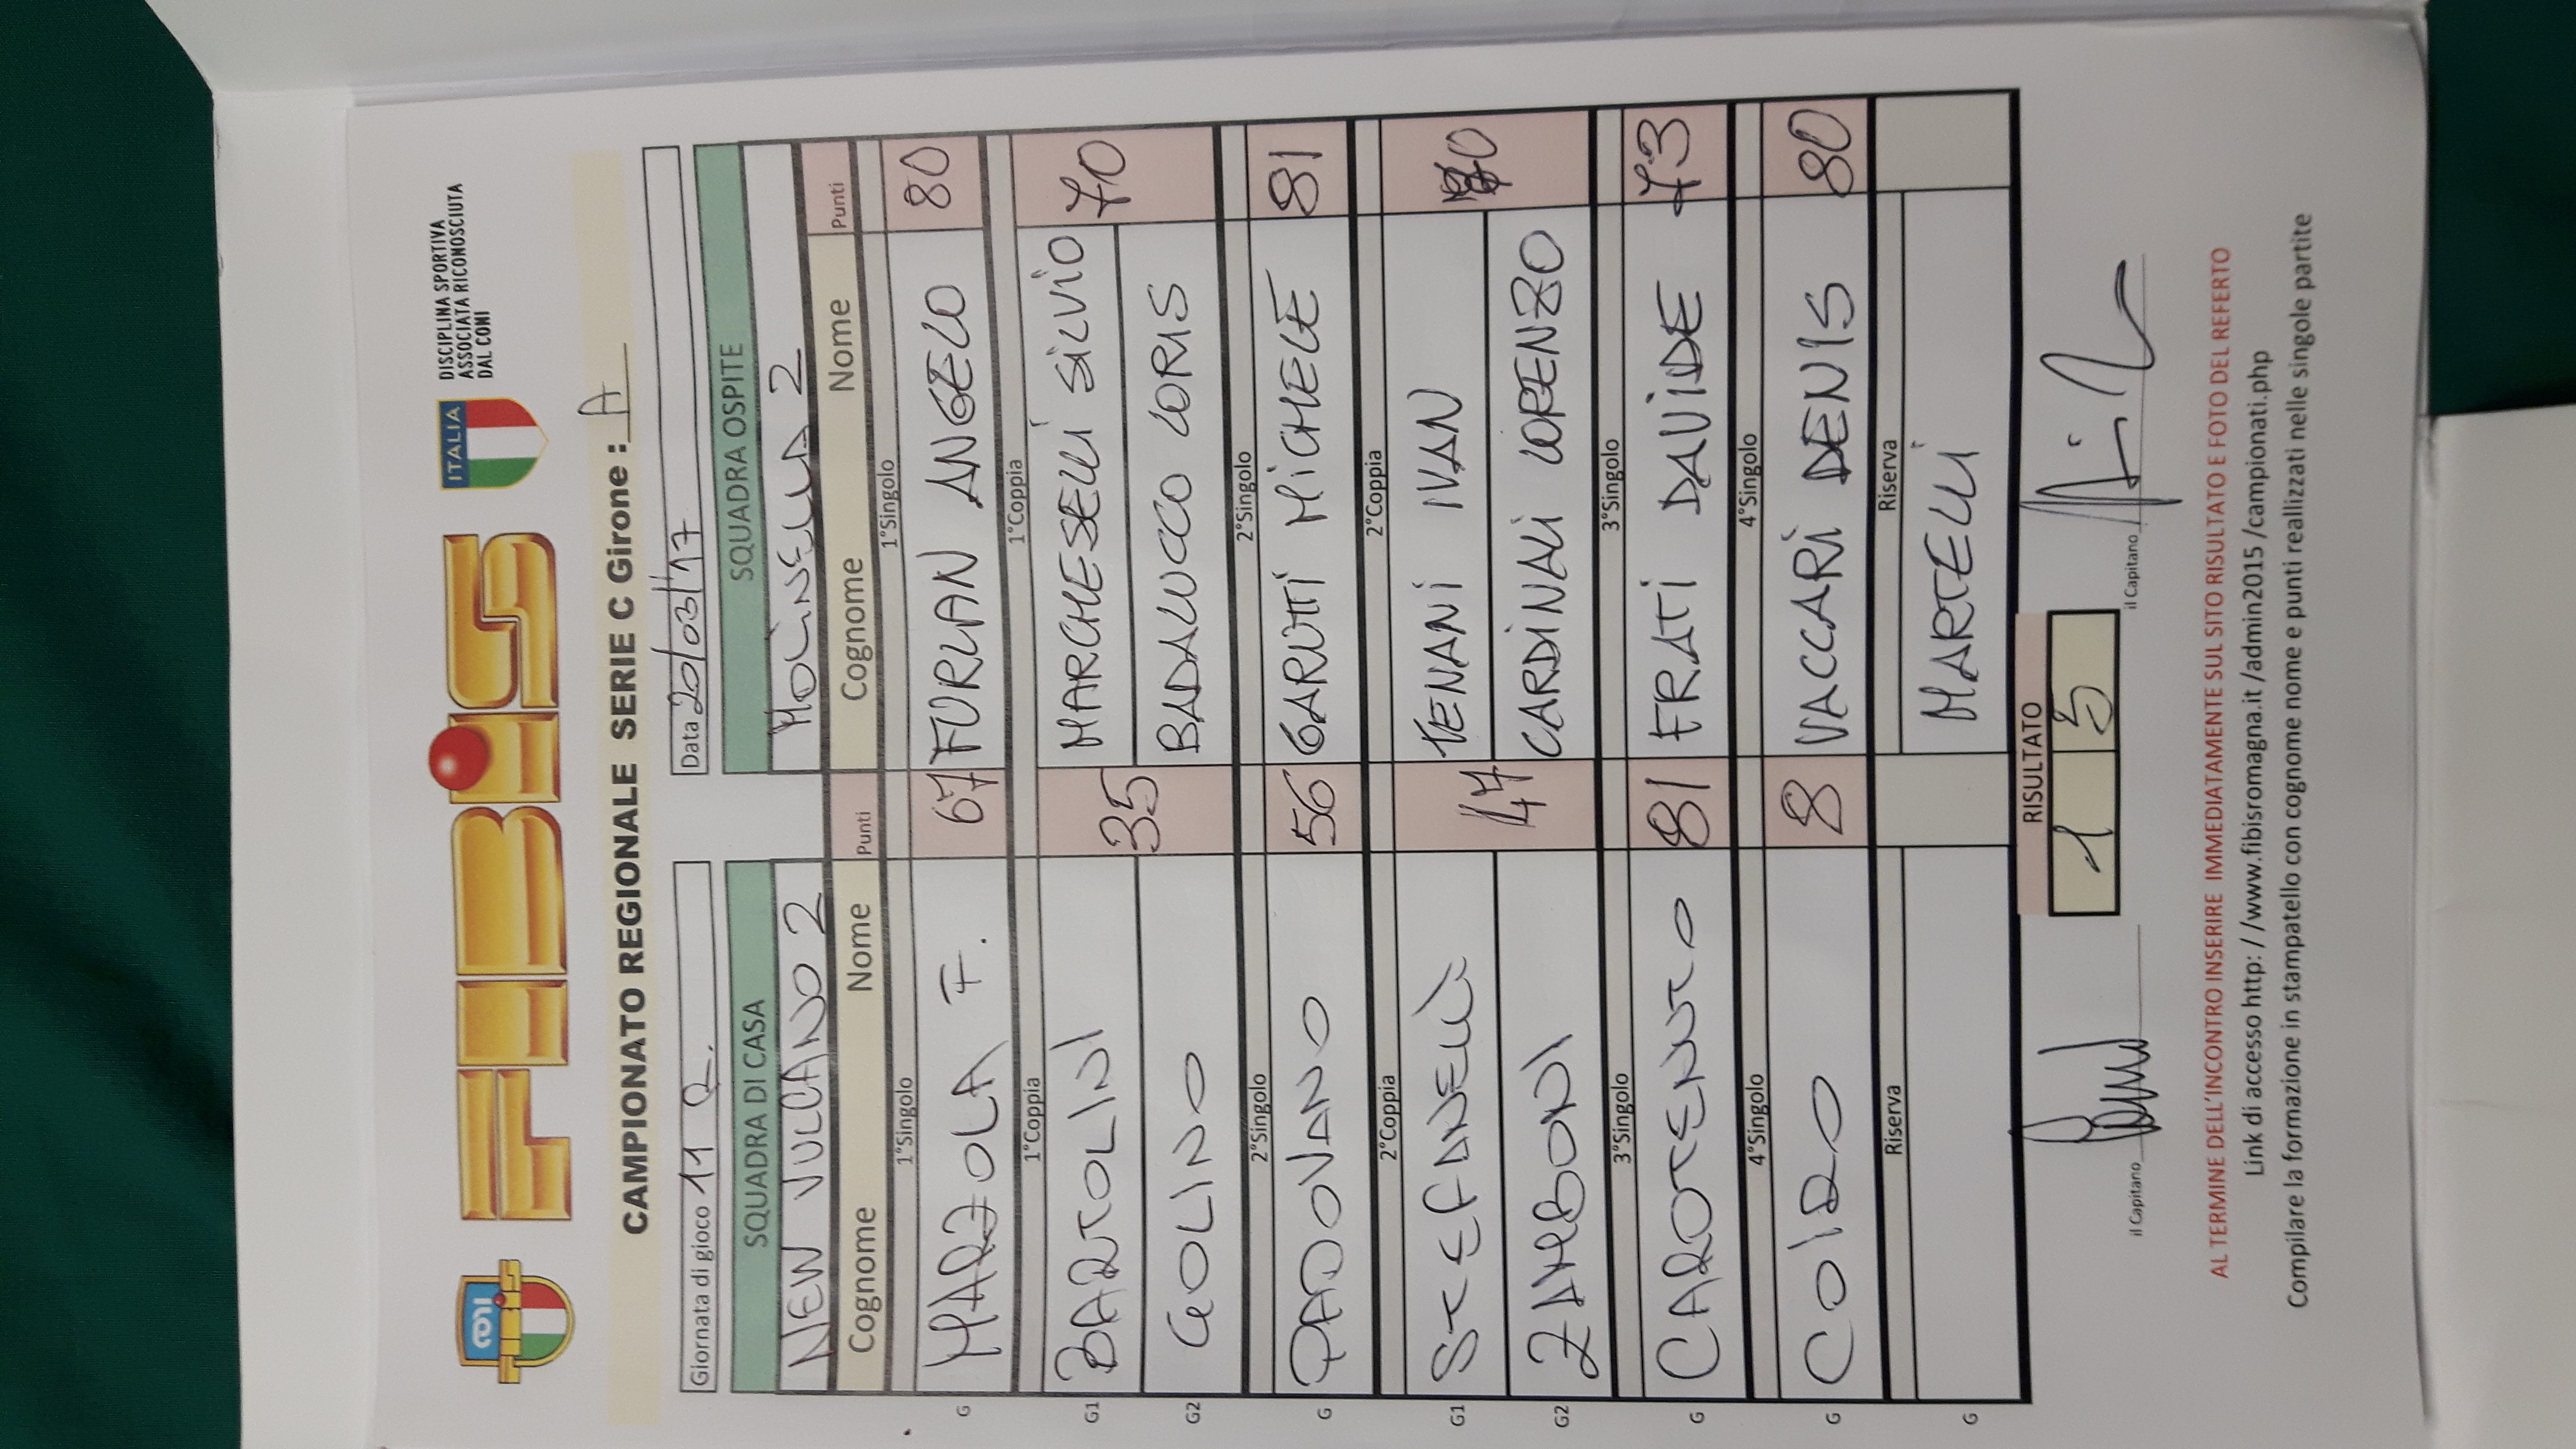 FIBiS
ITALIA
DISCIPLINA SPORTIVA
ASSOCIATA RICONOSCIUTA
DAL CONI
CAMPIONATO REGIONALE SERIE C Girone : A
Giornata di gioco 11 R.
Data 20/03/17
SQUADRA DI CASA SQUADRA OSPITE
NEW VULCANO 2 MOLINELLA 2
Cognome Nome Punti Cognome Nome Punti
1°Singolo 1°Singolo
G MARZOLA F. 67 FURLAN ANGELO 80
1°Coppia 1°Coppia
G1 BARTOLINI 35 MARCHESELLI SILVIO 70
G2 GOLINO BADALUCCO LORIS
2°Singolo 2°Singolo
G PADOVANO 56 GARUTTI MICHELE 81
2°Coppia 2°Coppia
G1 STEFANELLI 47 VENANI IVAN 70
G2 ZAMBONI CARDINALI LORENZO
3°Singolo 3°Singolo
G CAROTENUTO 81 FRATI DAVIDE 73
4°Singolo 4°Singolo
G COIRO 8 VACCARI DENIS 80
Riserva Riserva
G MARTELLI
RISULTATO
1 5
il Capitano il Capitano
AL TERMINE DELL'INCONTRO INSERIRE IMMEDIATAMENTE SUL SITO RISULTATO E FOTO DEL REFERTO
Link di accesso http: / /www.fibisromagna.it /admin2015 /campionati.php
Compilare la formazione in stampatello con cognome nome e punti reallizzati nelle singole partite